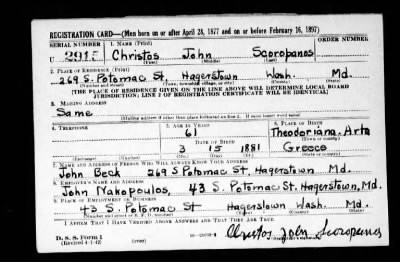 REGISTRATION CARD—(Men born on or after April 28, 1877 and on or before February 16, 1897)
SERIAL NUMBER 1. NAME (Print) ORDER NUMBER
U 2915 Christos John Scoropanos
(First) (Middle) (Last)
2. PLACE OF RESIDENCE (Print)
269 S. Potomac St. Hagerstown Wash. Md.
(Number and street) (Town, township, village, or city) (County) (State)
[THE PLACE OF RESIDENCE GIVEN ON THE LINE ABOVE WILL DETERMINE LOCAL BOARD
JURISDICTION; LINE 2 OF REGISTRATION CERTIFICATE WILL BE IDENTICAL]
3. MAILING ADDRESS
Same
[Mailing address if other than place indicated on line 2. If same insert word same]
4. TELEPHONE 5. AGE IN YEARS 6. PLACE OF BIRTH
61 Theodoriana, Arta
DATE OF BIRTH (Town or county)
3 15 1881 Greece
(Exchange) (Number) (Mo.) (Day) (Yr.) (State or country)
7. NAME AND ADDRESS OF PERSON WHO WILL ALWAYS KNOW YOUR ADDRESS
John Beck 269 S. Potomac St. Hagerstown Md.
8. EMPLOYER'S NAME AND ADDRESS
John Nakopoulos, 43 S. Potomac St. Hagerstown, Md.
9. PLACE OF EMPLOYMENT OR BUSINESS
43 S. Potomac St Hagerstown Wash. Md.
(Number and street or R. F. D. number) (Town) (County) (State)
I AFFIRM THAT I HAVE VERIFIED ABOVE ANSWERS AND THAT THEY ARE TRUE.
D. S. S. Form 1 Christos John Scoropanos
(Revised 4-1-42) (over)